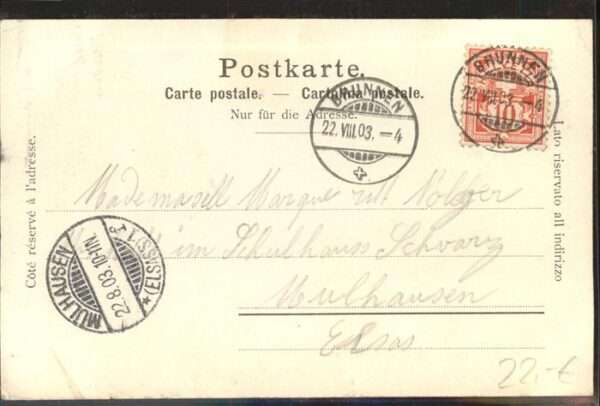 Postkarte.
Carte postale. — Cartolina postale.
Nur für die Adresse.
BRUNNEN
22.VIII.03. — 4
BRUNNEN
22.VIII.03. — 4
10
Côté réservé à l'adresse.
Lato riservato all indirizzo
Mademoisell
im Schulhauss Schwarz
Mulhausen
Elsas
MÜLHAUSEN
22.8.03.10-11N.
(ELSASS)
22.-€